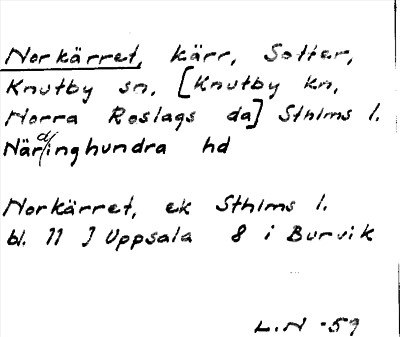 Norkärret, kärr, Sottar,
Knutby sn, [Knutby kn,
Norra Roslags da] Sthlms l.
Närdinghundra hd
Norkärret, ek Sthlms l.
bl. 11 J Uppsala 8 i Burvik
L.N -59